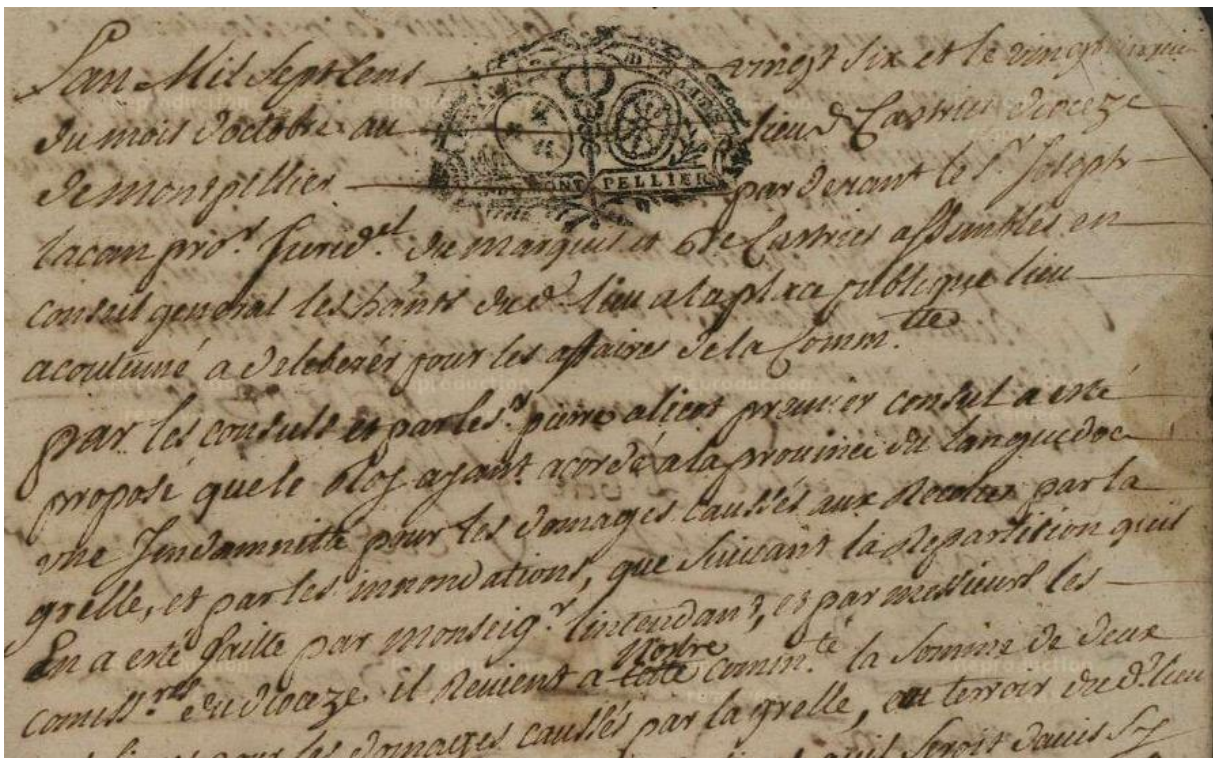 Lan Mil Sept Cens vingt Six et le vingt
du mois doctobre au lieu de Castries dioceze
de montpellier par devant le Sr Joseph
lacan pror Jurid.el du marquisat de Castries assemblés en
conseil general les hants du d. lieu a la place publique lieu
acoutumé a deleberér pour les affaires de la Comm.tté
par les consuls et par le Sr pierre premier consul a esté
proposé que le Roy ayant acordé a la province du languedoc
une Jndamnité pour les domages caussés aux Recoltes par la
grelle, et par les innondations, que suivant la Repartition quil
En a esté faitte par monseigr lintendant, et par messieurs les
comiss.res du dioaze il Revient a nostre comm.té la somme de deux
pour les domages caussés par la grelle, au terroir du d. lieu
quil seroit davis sy
MONTPELLIER